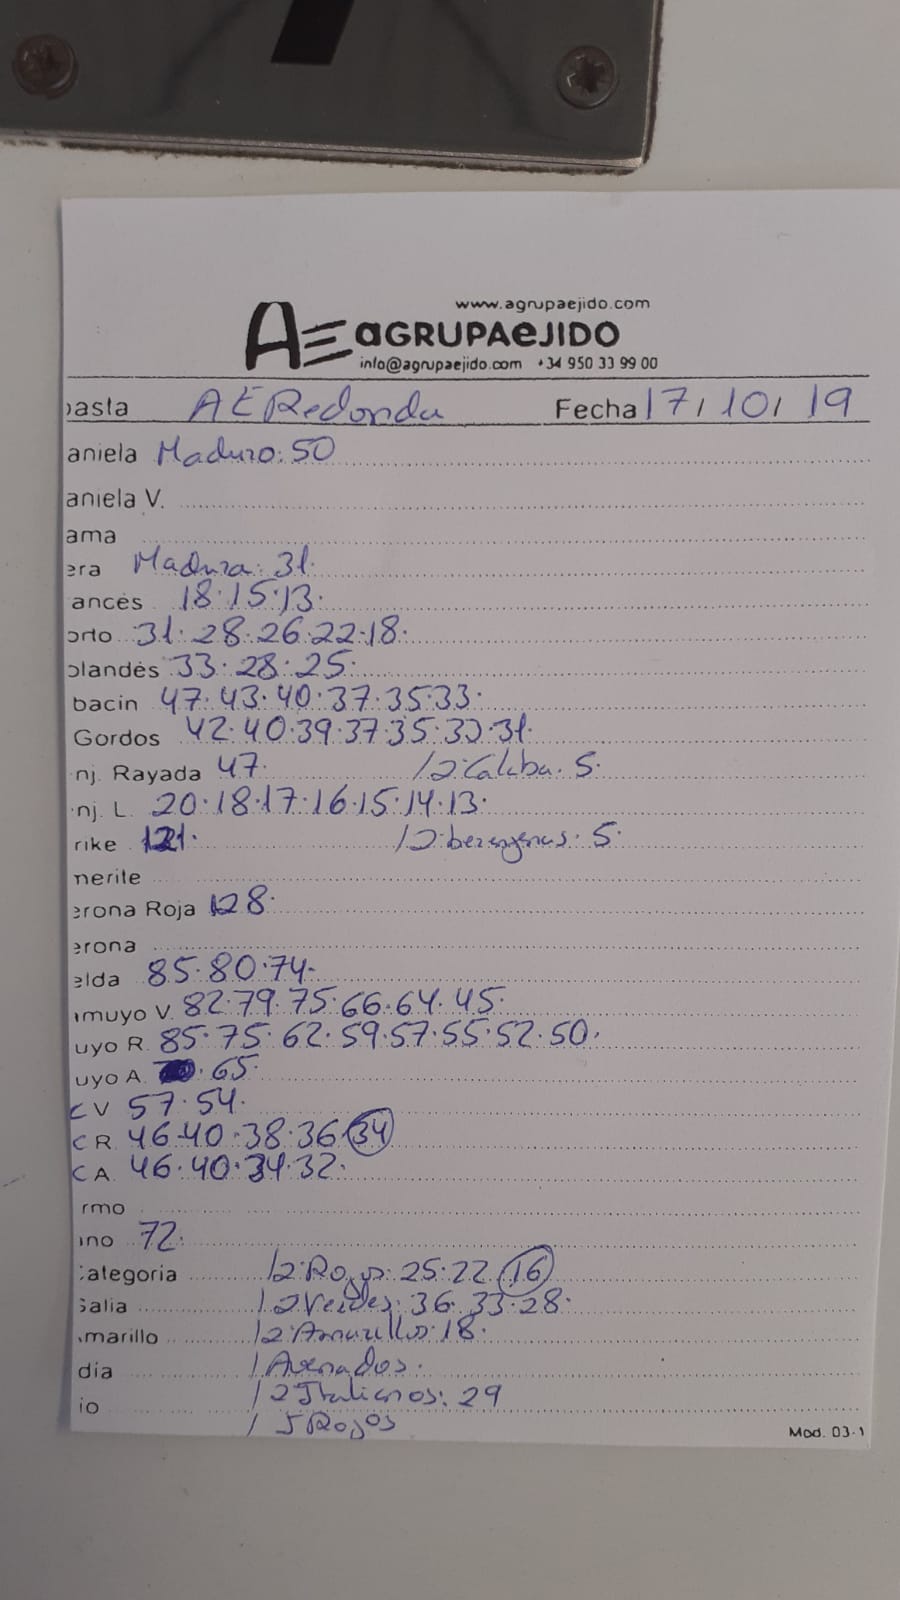 www.agrupaejido.com
AE aGRUPAeJIDO
info@agrupaejido.com +34 950 33 99 00
basta AE Redonda Fecha 17/10/19
aniela Maduro: 50
aniela V.
ama
era Madura: 31.
ancés 18.15.13.
orto 31.28.26.22.18.
olandés 33.28.25.
bacin 47.43.40.37.35.33.
Gordos 42.40.39.37.35.33.31.
nj. Rayada 47. /2:Calaba. 5.
nj. L. 20.18.17.16.15.14.13.
rike 121. /2:berenjenas: 5.
nerite
erona Roja 128.
erona
elda 85.80.74.
muyo V. 82.79.75.66.64.45.
uyo R. 85.75.62.59.57.55.52.50.
uyo A. .65.
C V 57.54.
C R 46.40.38.36.34
C A. 46.40.34.32.
rmo
ino 72.
Categoria /2:Rojos: 25.22.16
Galia /2Verdes: 36.33.28.
marillo /2:Amarillo: 18.
dia /Asenados.
io /2Italianos: 29
/ 5Rojos
Mod. 03-1